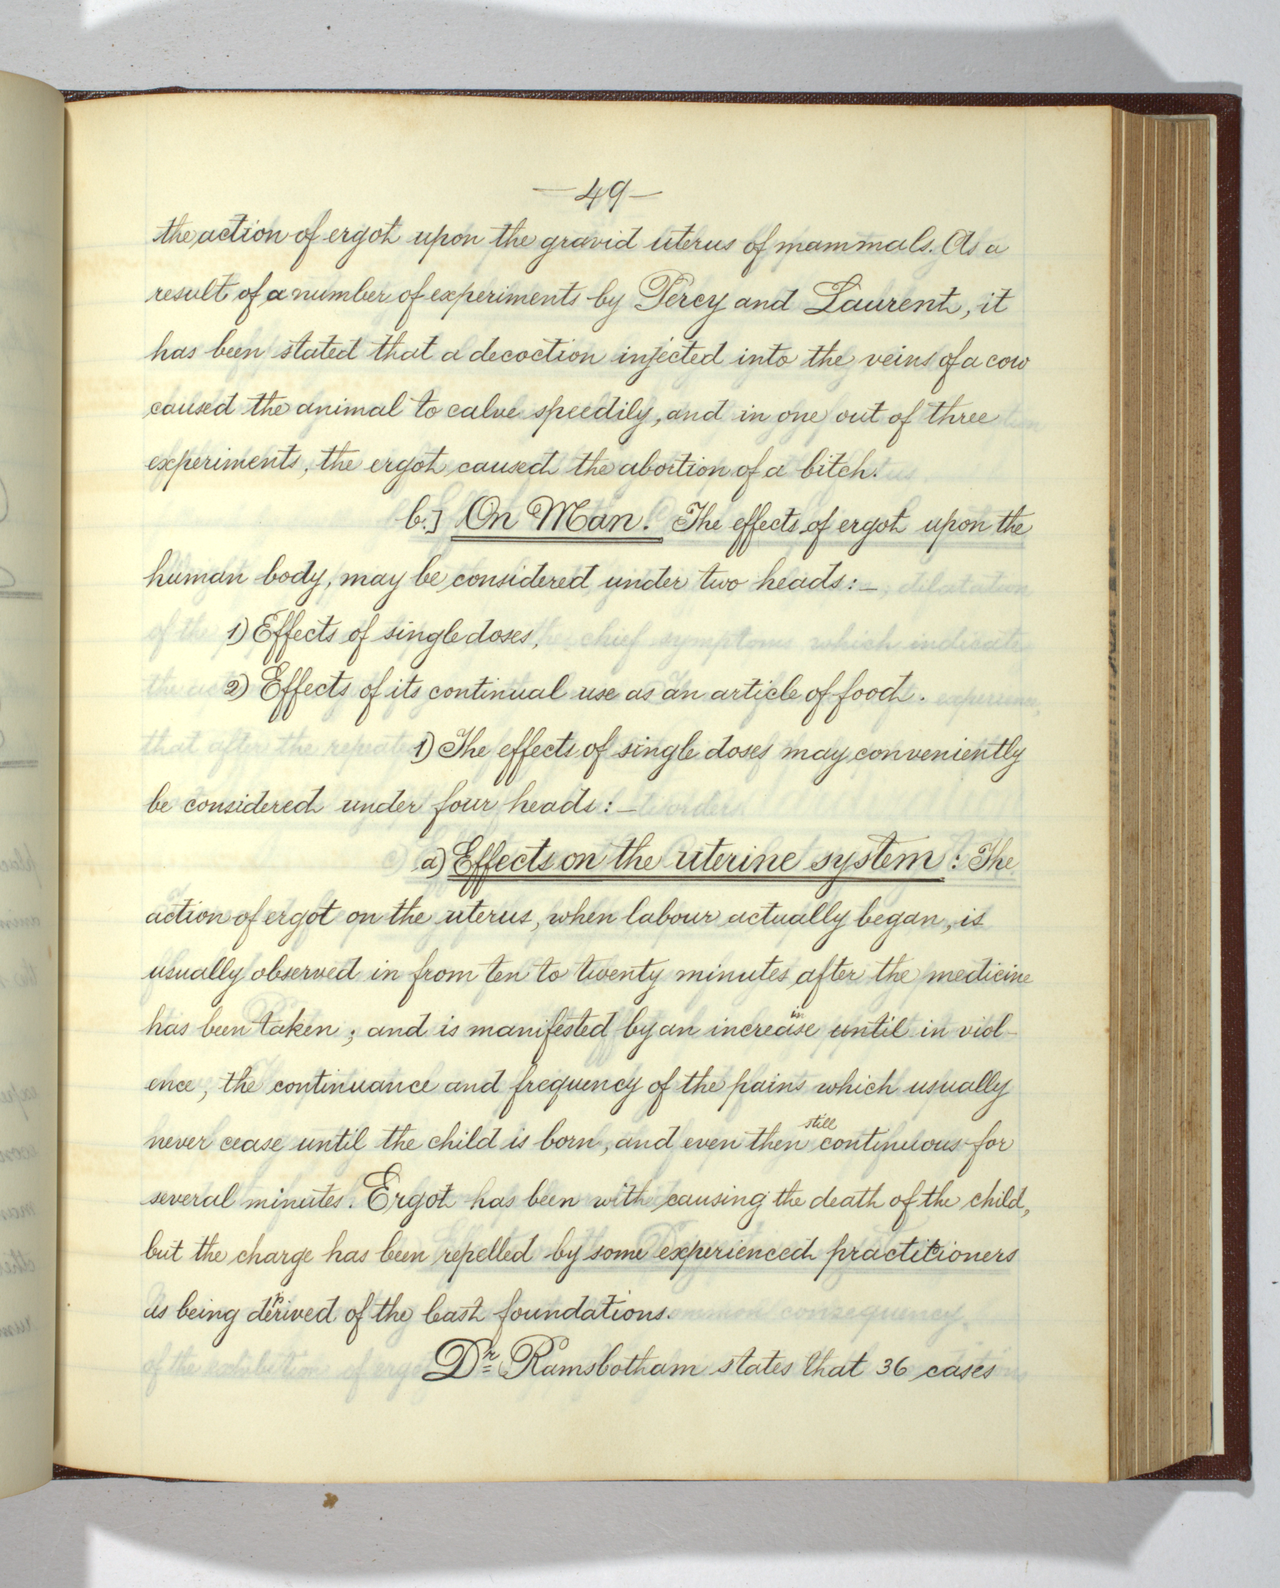 —49—
the action of ergot upon the gravid uterus of mammals. As a
result of a number of experiments by Percy and Laurent, it
has been stated that a decoction injected into the veins of a cow
caused the animal to calve speedily, and in one out of three
experiments, the ergot caused the abortion of a bitch.
b.] On Man. The effects of ergot upon the
human body, may be considered under two heads:—
1) Effects of single doses.
2) Effects of its continual use as an article of food.
1) The effects of single doses may conveniently
be considered under four heads:—
a) Effects on the uterine system: The
action of ergot on the uterus, when labour actually began, is
usually observed in from ten to twenty minutes after the medicine
has been taken; and is manifested by an increase in until in viol-
ence, the continuance and frequency of the pains which usually
never cease until the child is born, and even then still continuous for
several minutes. Ergot has been with causing the death of the child,
but the charge has been repelled by some experienced practitioners
as being derived of the least foundations.
Dr Ramsbotham states that 36 cases